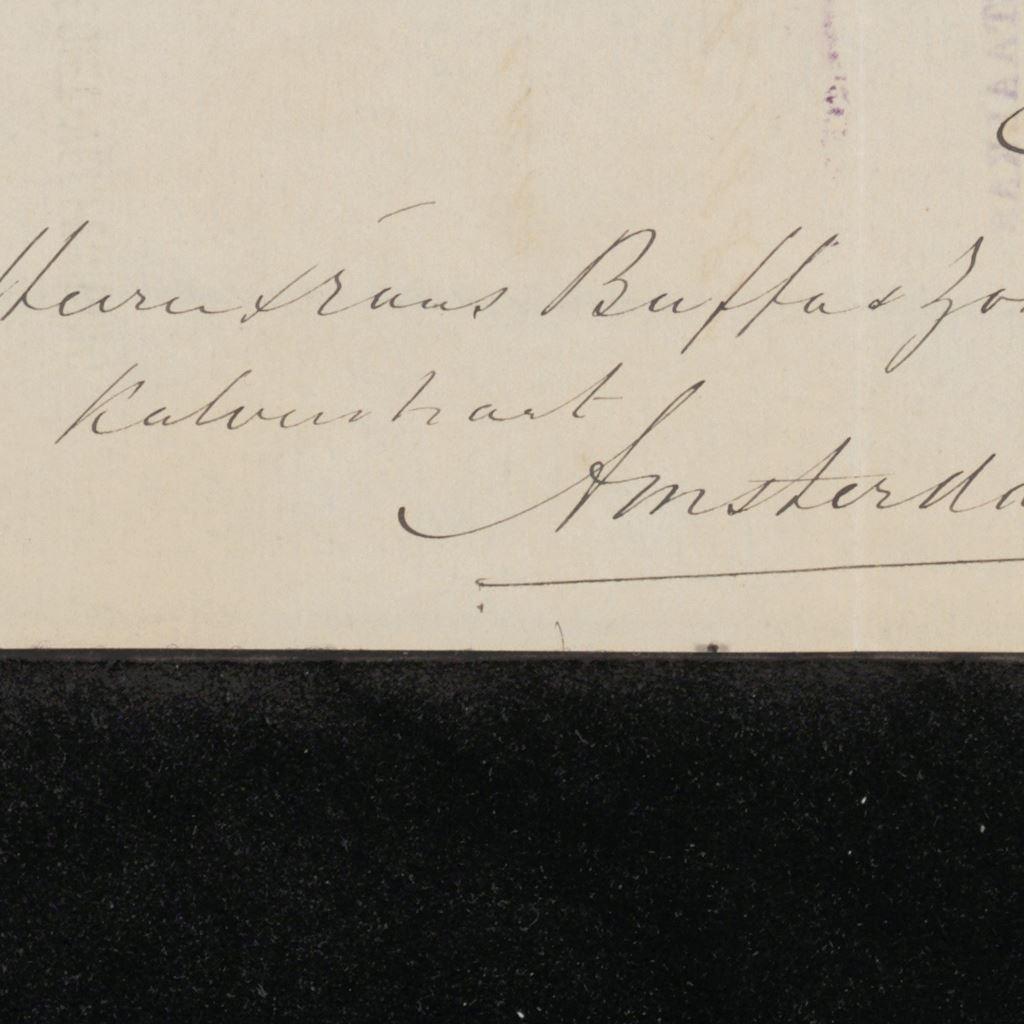 Heeren Frans Buffa & Zon
Kalverstraat
Amsterda